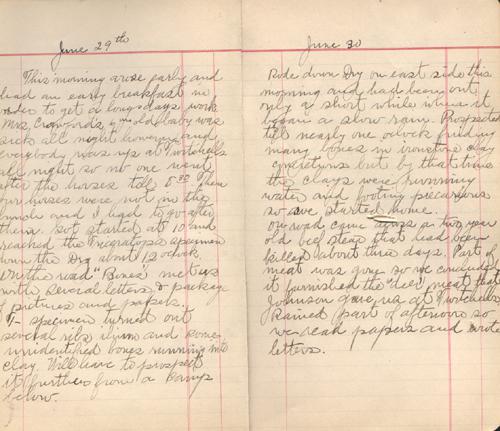 June 29th
This morning arose early and
had an early breakfast in
order to get a long days work
Mrs. Crawfords old baby was
sick all night however and
everybody was up at Twitchells
all night so no one went
after the horses till 8:00 Then
our horses were not in the
bunch and I had to go after
them. Got started at 10 and
reached the Triceratops specimen
down the Dry about 12 oclock.
On the road "Bones" met us
with several letters & package
of pictures and papers.
T- specimen turned out
several ribs ilium and some
unidentified bones running into
clay. Will have to prospect
it further from a camp
below.
June 30
Rode down Dry on east side this
morning and had been out
only a short while when it
began a slow rain. Prospected
till nearly one oclock finding
many bones in ironstone clay
concretions but by that time
the clays were running
water and footing precarious
so we started home.
On road came across a two year
old beef steer that had been
killed about three days. Part of
meat was gone so we concluded
it furnished the "deer" meat that
Johnson gave us at Twitchells
Rained part of afternoon so
we read papers and wrote
letters.